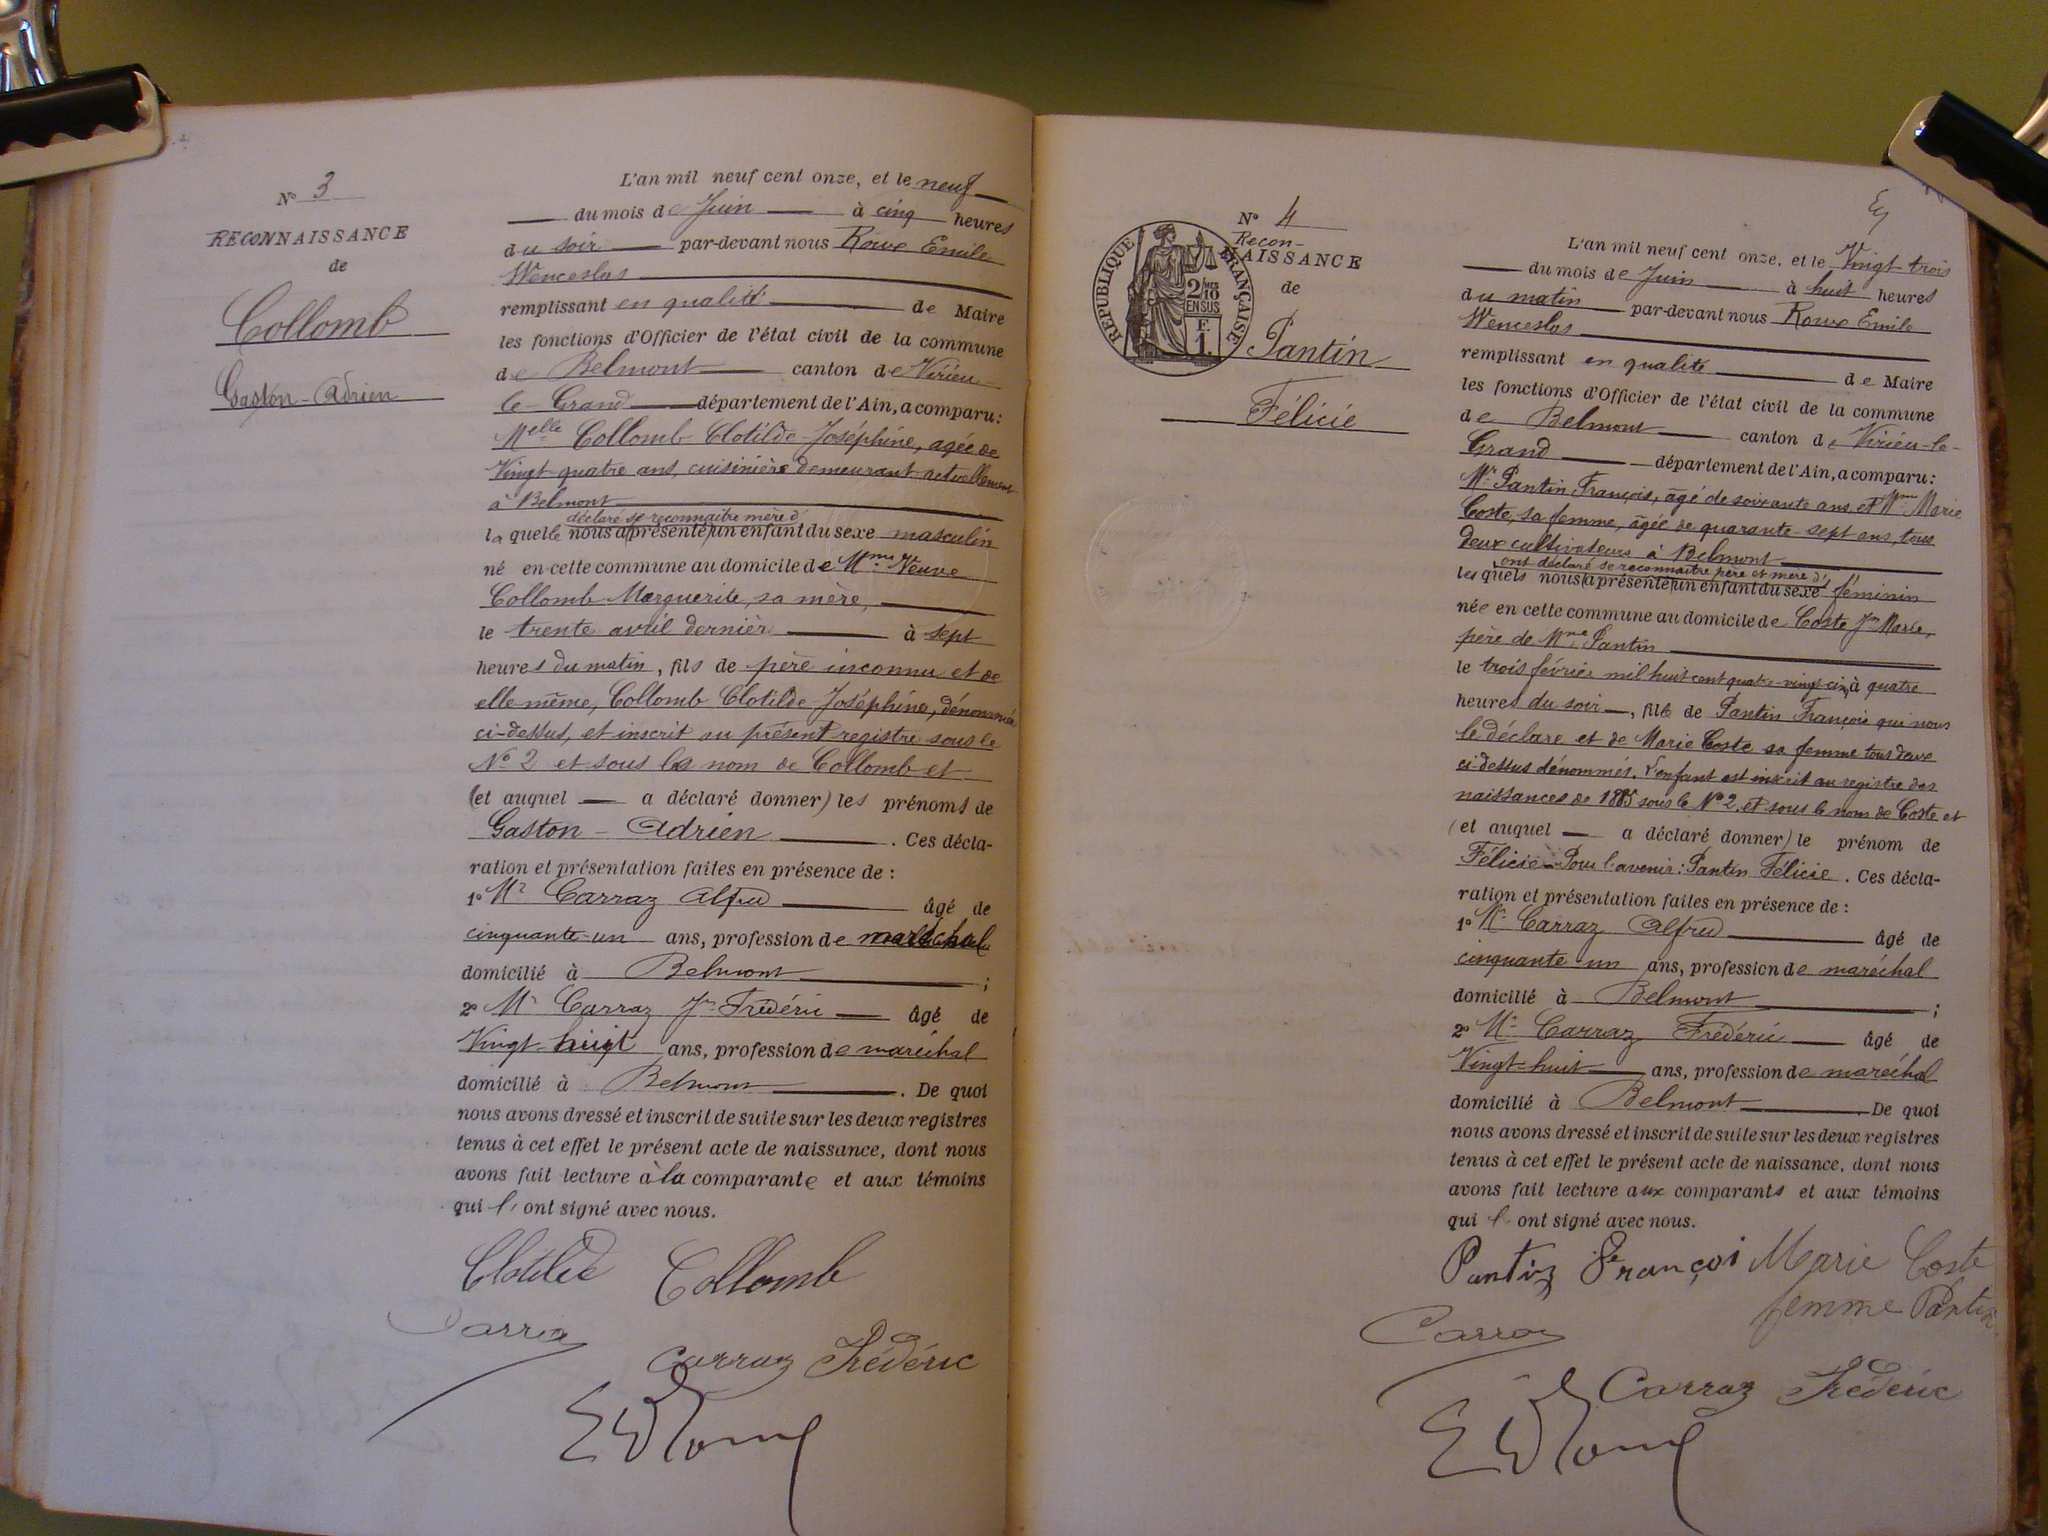 N° 3
RECONNAISSANCE
de
Collomb
Gaston-Adrien
L'an mil neuf cent onze, et le neuf
du mois de Juin à cinq heures
du soir par-devant nous Roux Emile
Wenceslas
remplissant en qualité de Maire
les fonctions d'Officier de l'état civil de la commune
de Belmont canton de Virieu
le-Grand département de l'Ain, a comparu:
Melle Collomb Clotilde Joséphine, agée de
Vingt-quatre ans, cuisinière demeurant actuellement
à Belmont
déclaré se reconnaitre mère d'
la quelle nous a (présenté) un enfant du sexe masculin
né en cette commune au domicile de Mme Veuve
Collomb Marguerite, sa mère,
le trente avril dernièr à sept
heures du matin, fils de père inconnu et de
elle-même, Collomb Clotilde Joséphine, dénommée
ci-dessus, et inscrit au présent registre sous le
N° 2 et sous le nom de Collomb et
(et auquel a déclaré donner) les prénoms de
Gaston - Adrien . Ces décla-
ration et présentation faites en présence de :
1° Mr Carraz Alfred âgé de
cinquante-un ans, profession de maréchal
domicilié à Belmont ;
2° Mr Carraz Jn Frédéric âgé de
Vingt-huit ans, profession de maréchal
domicilié à Belmont . De quoi
nous avons dressé et inscrit de suite sur les deux registres
tenus à cet effet le présent acte de naissance, dont nous
avons fait lecture à la comparante et aux témoins
qui l' ont signé avec nous.
Clotilde Collomb
Carraz
Carraz Frédéric
E W Roux
N° 4
Recon-
NAISSANCE
de
RÉPUBLIQUE FRANÇAISE
2/10 EN SUS
F.
1.
Pantin
Félicie
L'an mil neuf cent onze, et le Vingt-trois
du mois de Juin à huit heures
du matin par-devant nous Roux Emile
Wenceslas
remplissant en qualité de Maire
les fonctions d'Officier de l'état civil de la commune
de Belmont canton de Virieu-le-
Grand département de l'Ain, a comparu:
Mr Pantin François, âgé de soixante ans et Mme Marie
Coste, sa femme, âgée de quarante-sept ans, tous
deux cultivateurs à Belmont
ont déclaré se reconnaitre père et mère d'
lesquels nous (a présenté) un enfant du sexe féminin
née en cette commune au domicile de Coste Jn Marie,
père de Mme Pantin
le trois février mil huit cent quatre-vingt-cinq à quatre
heures du soir, fille de Pantin François qui nous
le déclare et de Marie Coste sa femme tous deux
ci-dessus dénommés. L'enfant est inscrit au registre des
naissances de 1885 sous le N° 2. et sous le nom de Coste et
(et auquel a déclaré donner) le prénom de
Félicie. Pour l'avenir: Pantin Félicie . Ces décla-
ration et présentation faites en présence de :
1° Mr Carraz Alfred âgé de
cinquante-un ans, profession de maréchal
domicilié à Belmont ;
2° Mr Carraz Frédéric âgé de
Vingt-huit ans, profession de maréchal
domicilié à Belmont . De quoi
nous avons dressé et inscrit de suite sur les deux registres
tenus à cet effet le présent acte de naissance, dont nous
avons fait lecture aux comparants et aux témoins
qui l' ont signé avec nous.
Pantin Françoi Marie Coste
femme Pantin
Carraz
Carraz Frédéric
E W Roux